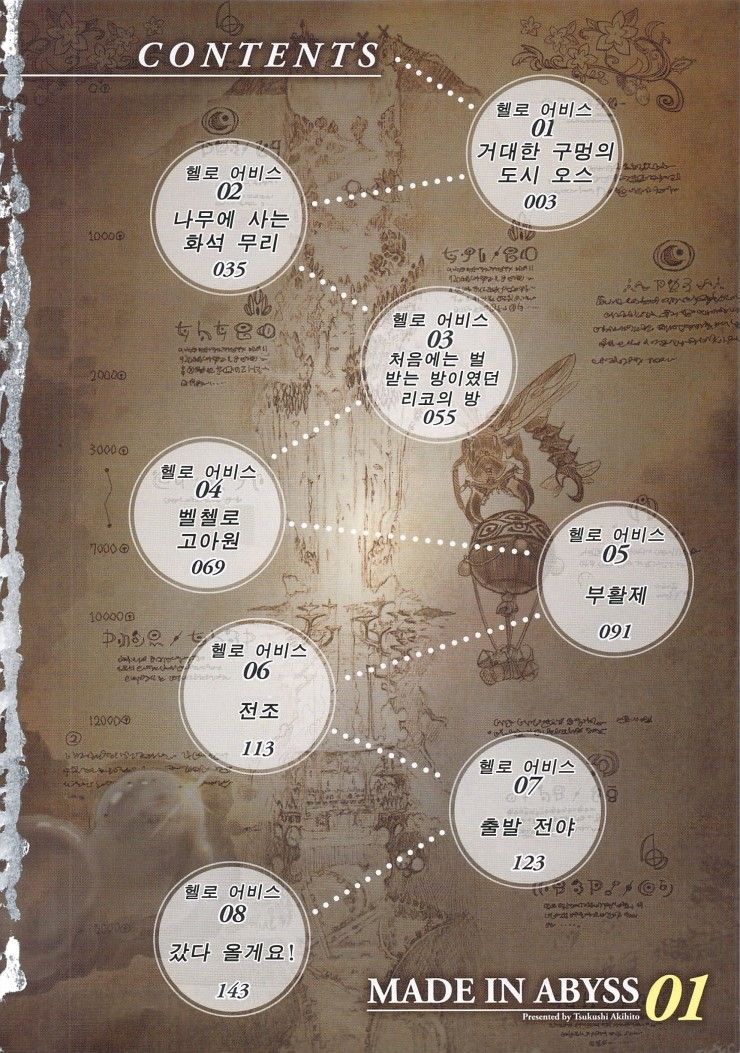 CONTENTS
헬로 어비스
01
거대한 구멍의
도시 오스
003
헬로 어비스
02
나무에 사는
화석 무리
035
헬로 어비스
03
처음에는 벌
받는 방이였던
리코의 방
055
헬로 어비스
04
벨첼로
고아원
069
헬로 어비스
05
부활제
091
헬로 어비스
06
전조
113
헬로 어비스
07
출발 전야
123
헬로 어비스
08
갔다 올게요!
143
1000
2000
3000
7000
10000
12000
MADE IN ABYSS 01
Presented by Tsukushi Akihito